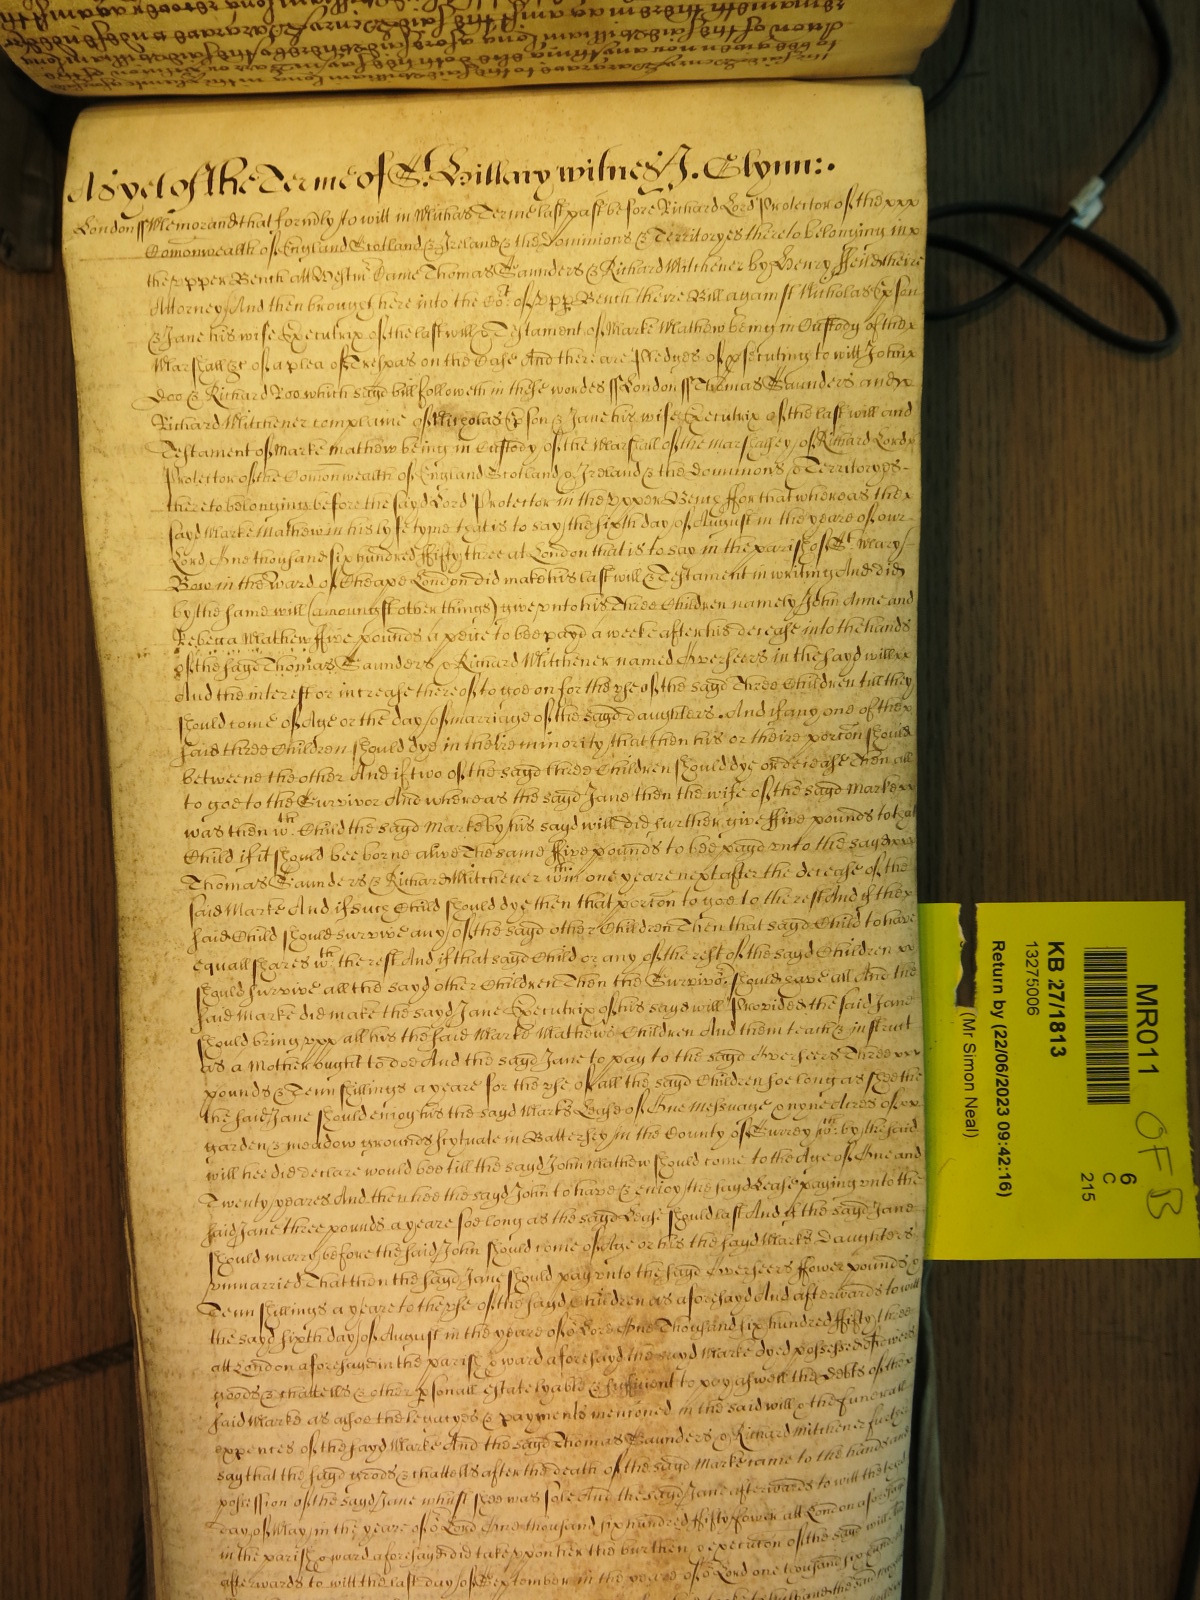 As yet of the Terme of St. Hillary witnes J. Glynn:.
London ss Memorand that formdly to will in Michas Terme last past before Richard Lord Protector of the xxx
Comonwealth of England Scotland & Ireland & the Dominions & Territoryes thereto belonging in x
the upper Bench att Westmr Came Thomas Saunders & Richard Mitchener by Henry ffeild theire
Attorney And then brought here into the Cort of upp Bench theire Bill against Nicholas Epson
& Jane his wife Executrix of the last will & Testament of Marke Mathew being in Custody of the x
Marshall &c of a plea of Trespas on the Case And there are Pledges of psecuting to will John x
Doo & Richard Roo which sayd bill followeth in these wordes ss London ss Thomas Saunders and x
Richard Mitchener complaine of Nicholas Epson & Jane his wife Executrix of the last will and
Testament of Marke mathew being in Custody of the Marshall of the marshalsey of Richard Lord x
Protector of the Comonwealth of England Scotland & Ireland & the Dominions & Territoryes -
thereto belonging before the sayd Lord Protector in the Upper Bench ffor that whereas the x
sayd Marke Mathew in his lyfe tyme that is to say the sixth day of August in the yeare of our -
Lord One thousand six hundred ffifty three at London that is to say in the parish of St Mary -
Bow in the Ward of Cheape London did make his last will & Testament in writing And did
by the same will (amoungst other things) give unto his Three Children namely John Anne and
Rebecca Mathew ffive pounds a peice to bee payd a weeke after his decease into the hands
of the sayd Thomas Saunders & Richard Mitchener named Overseers in the sayd will xx
And the interest or increase thereof to goe on for the use of the sayd Three Children till they
should come of Age or the day of marriage of the sayd daughters. And if any one of the x
said three Children should dye in theire minority that then his or theire porcon should
betweene the other And if two of the sayd three Children should dye or decease Then all
to goe to the Survivor And whereas the sayd Jane then the wife of the sayd Marke xx
was then wth Child the sayd Marke by his sayd will did further give ffive pounds to that
Child if it should bee borne alive The same ffive pounds to bee payd unto the sayd xx
Thomas Saunders & Richard Mitchener wthin one yeare next after the decease of the
said Marke And if such Child should dye then that porcon to goe to the rest And if the x
said Child should survive any of the sayd other Children Then that sayd Child to have
equall shares wth the rest And if that sayd Child or any of the rest of the sayd Children xx
should survive all the sayd other Children Then the Survivor should have all And the
said Marke did make the sayd Jane Executrix of his sayd will Provided the said Jane
should bring upp all his the said Marke Mathewe Children And them teach & instruct
as a Mother ought to doe And the sayd Jane to pay to the sayd Overseers Three xxx
pounds & Tenn shillings a yeare for the use of all the sayd Children soe long as shee the
the said Jane should enjoy his the sayd Marks Lease of One Messuage & nyne Acres of xx
garden & meadow ground scytuate in Battersey in the County of Surrey wch by the said
will hee did declare would bee till the sayd John Mathew should come to the Age of One and
Twenty yeares And then hee the sayd John to have & enjoy the sayd Lease paying unto the
said Jane three pounds a yeare soe long as the sayd Lease should last And if the sayd Jane
should marry before the said John should come of Age or his the sayd Marks Daughters
unmarried That then the sayd Jane should pay unto the sayd Overseers ffower pounds &
Tenn shillings a yeare to the use of the sayd Children as aforesayd And afterwards to will
the sayd sixth day of August in the yeare of or Lord One Thousand six hundred ffifty three
att London aforesayd in the parish & ward aforesayd the sayd Marke dyed possessed of
goods & chattells & other psonall estate lyable & sufficient to pay aswell the Debts of the x
said Marke as alsoe the legacyes & payments mentioned in the said will & the funerall
expences of the sayd Marke And the sayd Thomas Saunders & Richard Mitchener further
say that the sayd goods & chattells after the death of the sayd Marke came to the hands and
possession of the sayd Jane whilst shee was sole And the sayd Jane afterwards to will the
day of May in the yeare of or Lord One thousand six hundred ffifty fower att London aforesayd
in the parish & ward aforesayd did take uppon her the burthen & execucon of the sayd will
afterwards to will the last day of September in the yeare of or Lord one thousand six hundred
MR011
KB 27/1813
13275006
Return by (22/06/2023 09:42:16)
(Mr Simon Neal)
6
C
215
OFB